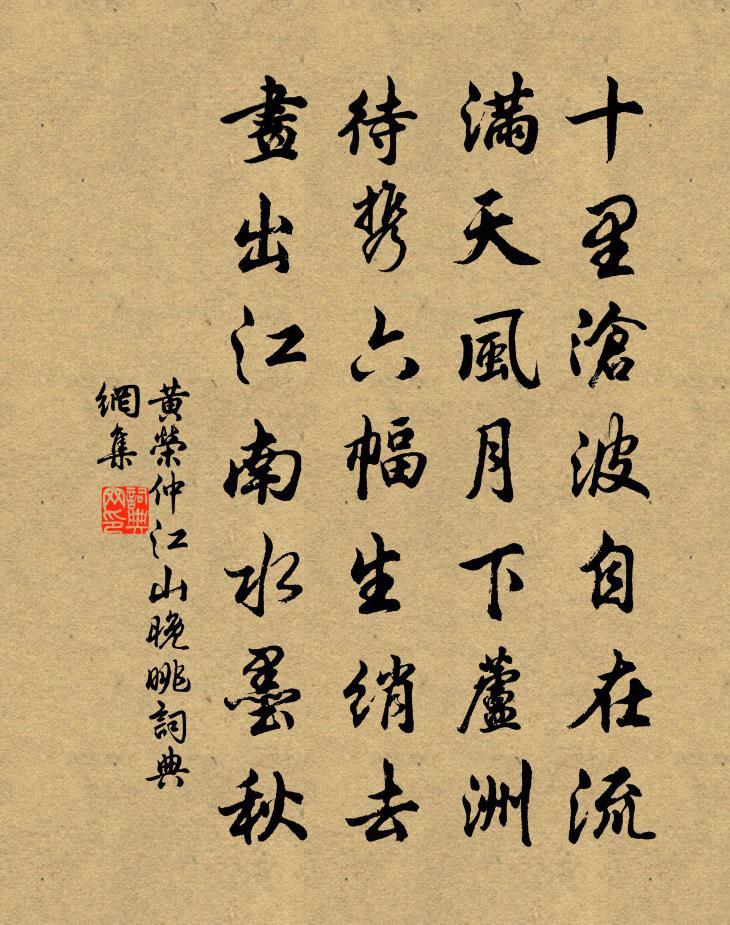 十里滄波自在流
滿天風月下蘆洲
待攜六幅生綃去
畫出江南水墨秋
黃榮仲江山晚眺詞典
網集
詞典
网印